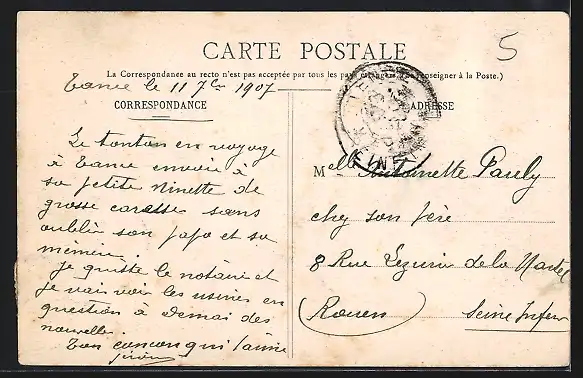 5
CARTE POSTALE
La Correspondance au recto n'est pas acceptée par tous les pays étrangers. (Se renseigner à la Poste.)
le 11 7bre 1907
CORRESPONDANCE
Le tonton en voyage
à envoie à
sa petite Ninette de
grosse caresse sans
oublier son papa et sa
mémère.
Je quitte le notaire et
je vais voir les usines en
question à demai des
nouvelles.
Ton concon qui t'aime
ADRESSE
Melle Antoinette Pauly
chez son père
8 Rue de la
Rouen Seine Infer